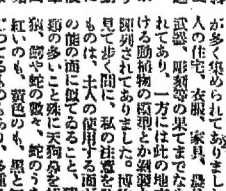 が多く集められてありまし
人の住宅、衣服、家具、農
武器、彫刻等の果てまで
れてあり、一方には此の地
ける動植物の模型とか剝製
陳列されてありました。博
見て歩く間に、私の注意を
ものは、土人の使用する面
の能の面に似てゐること、
類の多いこと殊に天狗鼻を
狼、鰐や蛇の數々、蛇のう
紅いのも、黃色のも、黑と